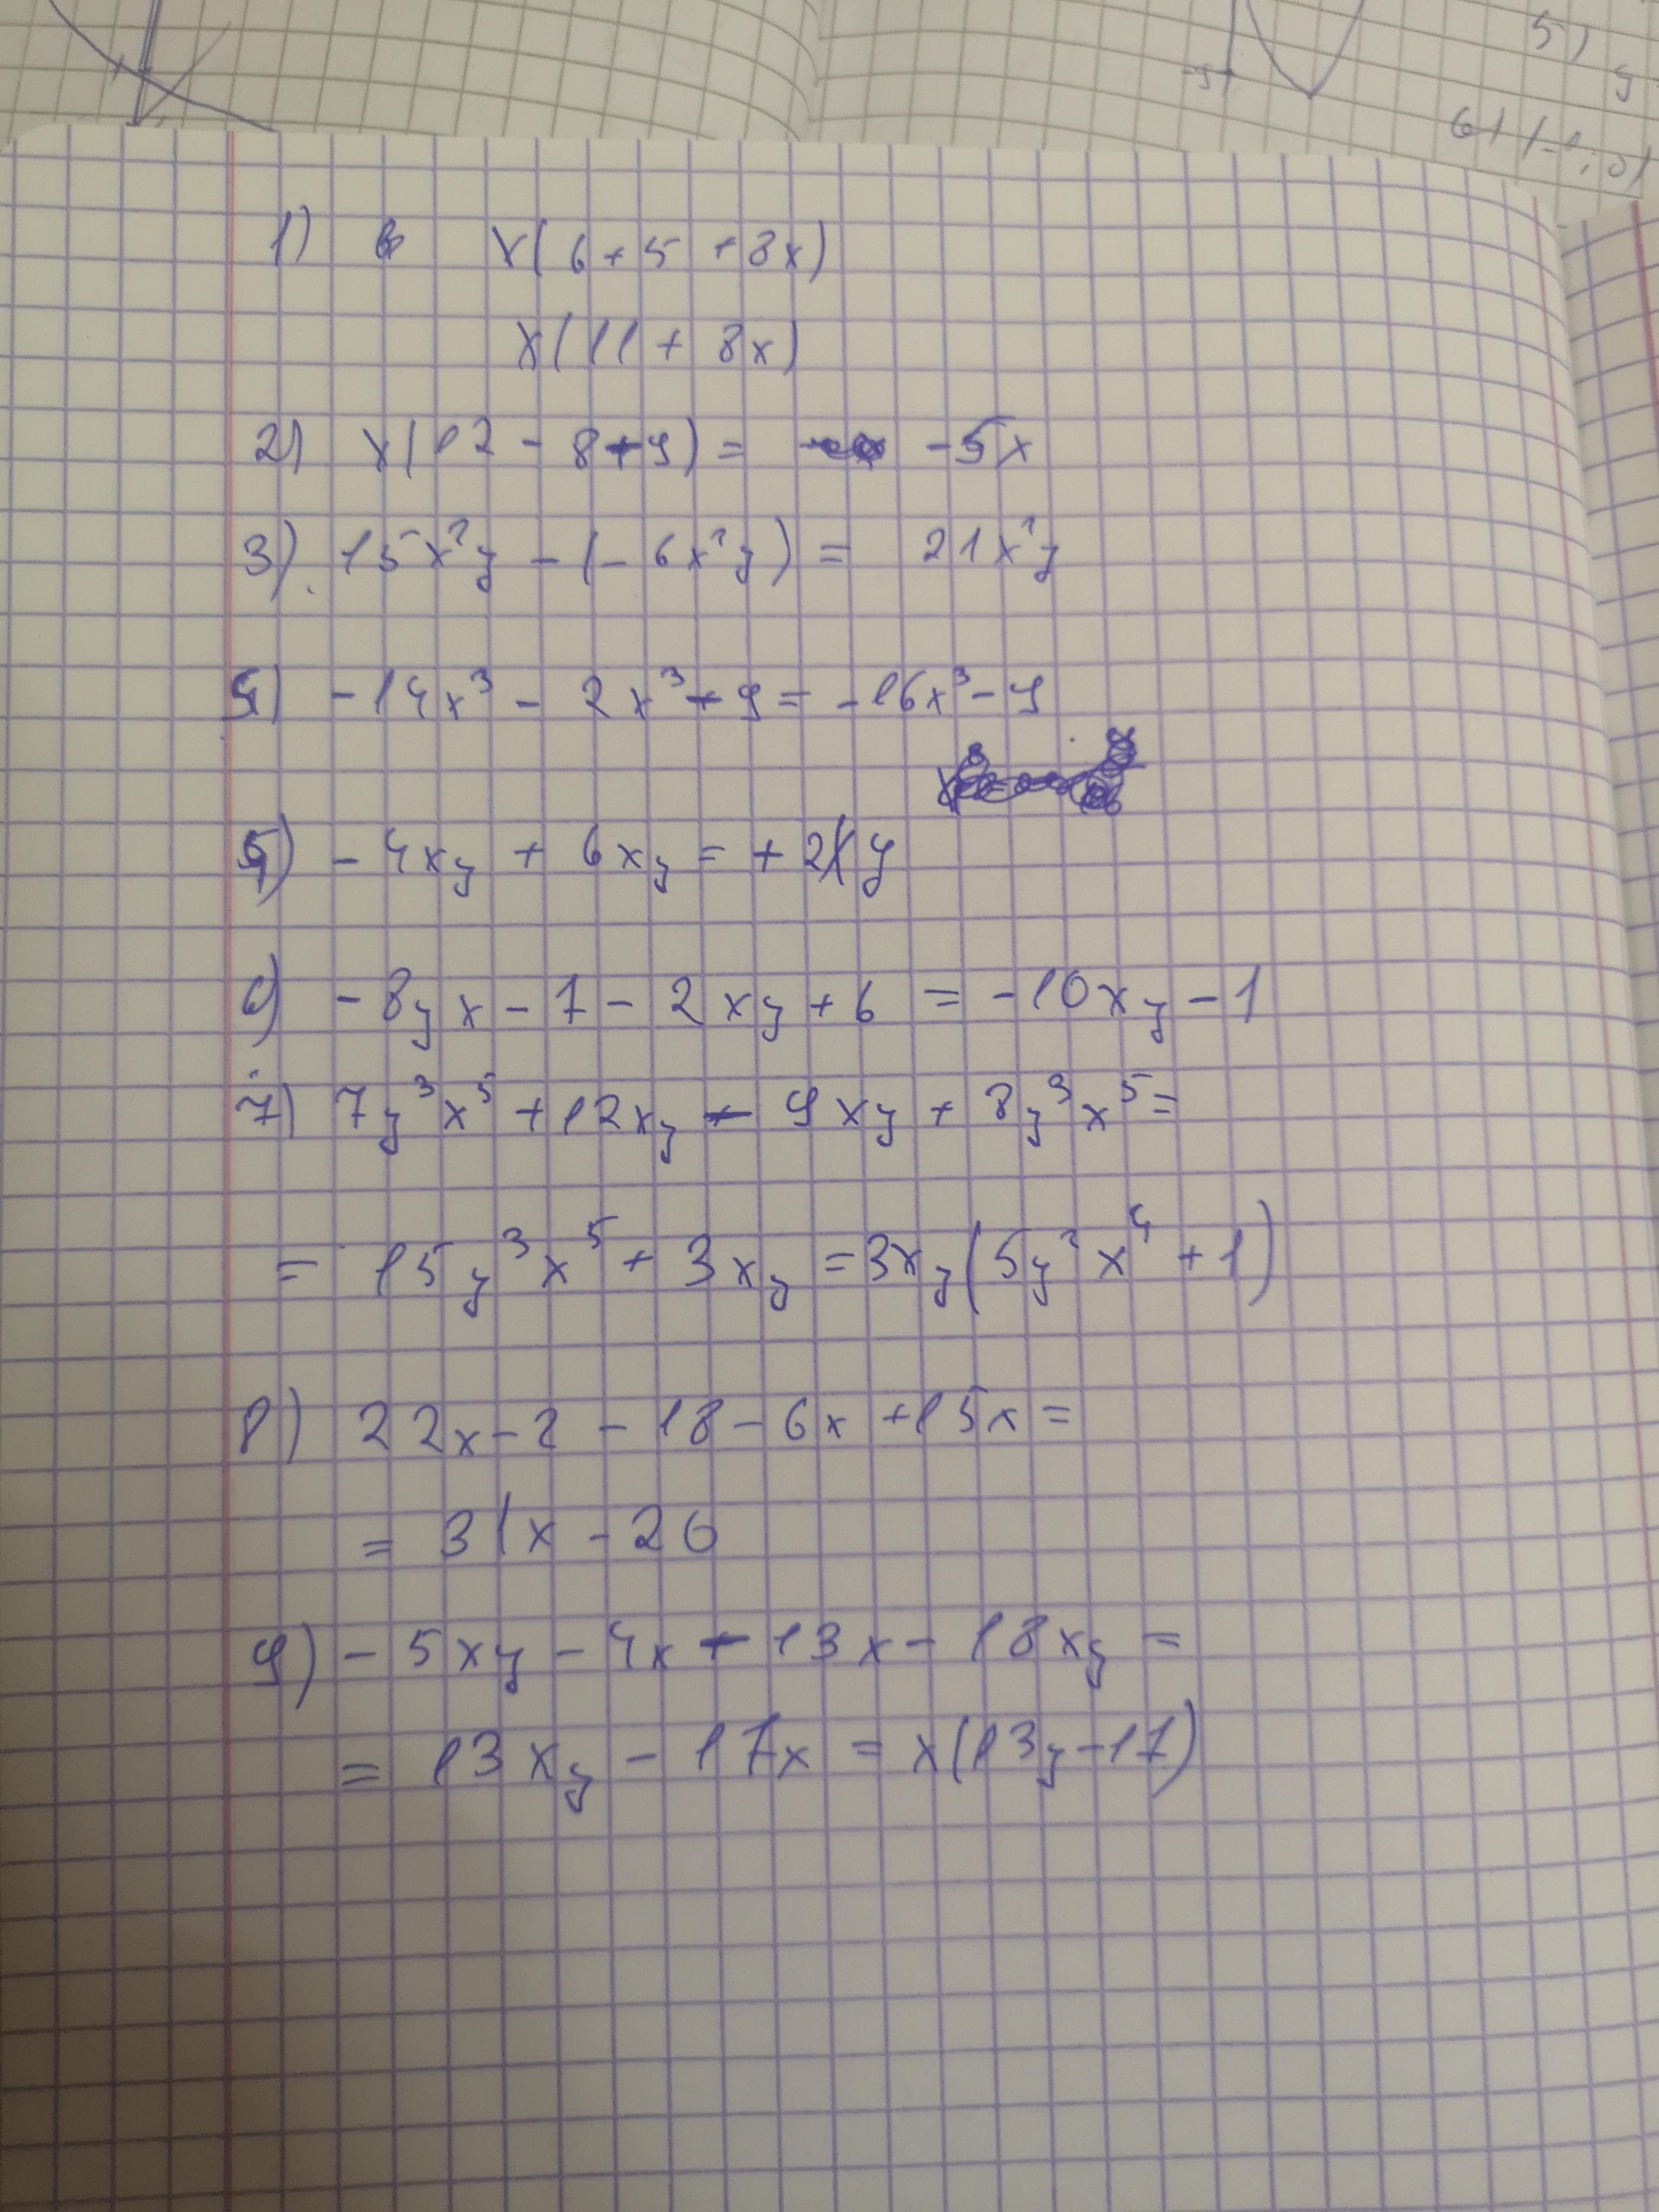 5)
y
-5
6) (-1;0)
1) x(6+5 +8x)
x(11 + 8x)
2) x(12 - 8-9) = -5x
3) 15x²y - (-6x²y) = 21x²y
4) -14x³ - 2x³ - 9 = -16x³ - 9
5) - 4xy + 6xy = + 2xy
6) - 8yx - 7 - 2xy + 6 = -10xy - 1
7) 7y³x⁵ + 12xy - 9xy + 8y³x⁵ =
= 15y³x⁵ + 3xy = 3xy(5y²x⁴ + 1)
8) 22x - 2 - 18 - 6x + 15x =
= 31x - 20
9) - 5xy - 4x - 13x - 18xy =
= 13xy - 17x = x(13y - 17)